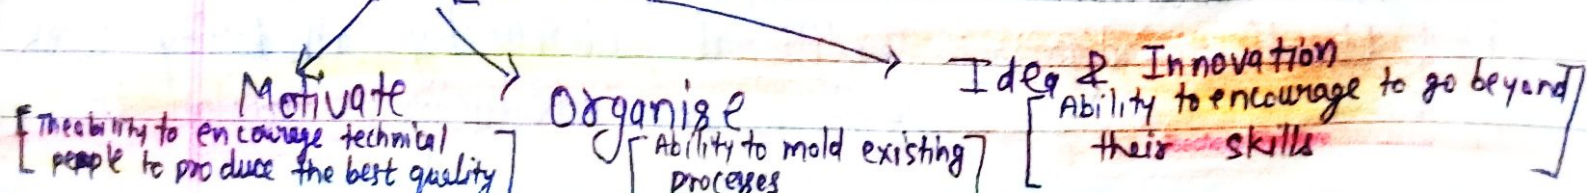 Motivate
[The ability to encourage technical
people to produce the best quality]
Organise
[Ability to mold existing]
processes
Idea & Innovation
[Ability to encourage to go beyond
their skills]